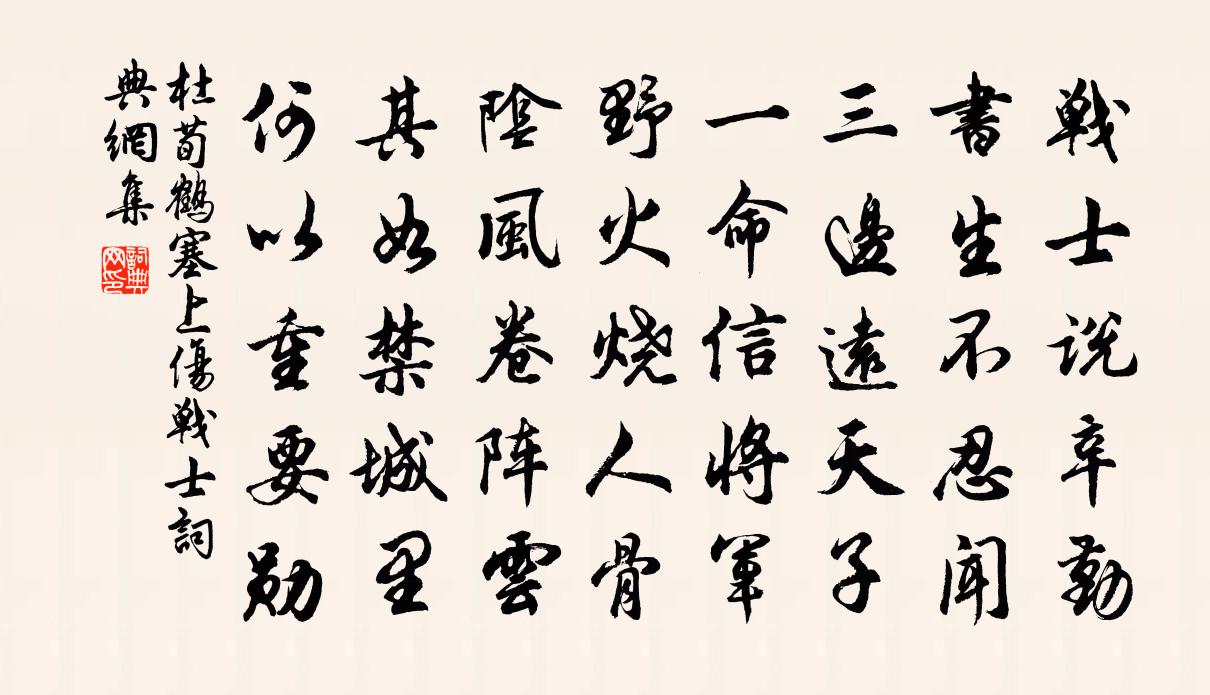 戦士説辛勤
書生不忍聞
三邊遠天子
一命信將軍
野火燒人骨
陰風卷阵雲
其如禁城里
何以重要勋
杜荀鶴塞上傷戦士詞
典網集
詞典网印